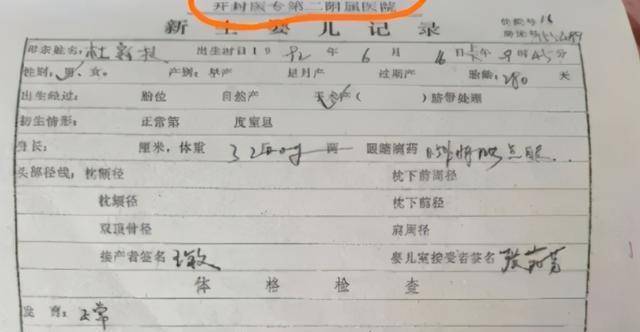 开封医专第二附属医院
新生婴儿记录
住院号 16
母亲姓名: 杜新枝 出生时日19 92 年 6 月 16 日 上午 9 时 45 分
性别: 男、女。 产别: 早产 足月产 过期产 胎龄: 280 天
出生经过: 胎位 自然产 手术产( ) 脐带处理
初生情形: 正常第 度窒息
身长: 厘米, 体重 3250g 两 眼睛滴药 点眼
头部径线: 枕额径 枕下前周径
枕颏径 枕下前径
双顶骨径 肩周径
接产者签名 王敏 婴儿室接受者签名
体格检查
发育: 正常